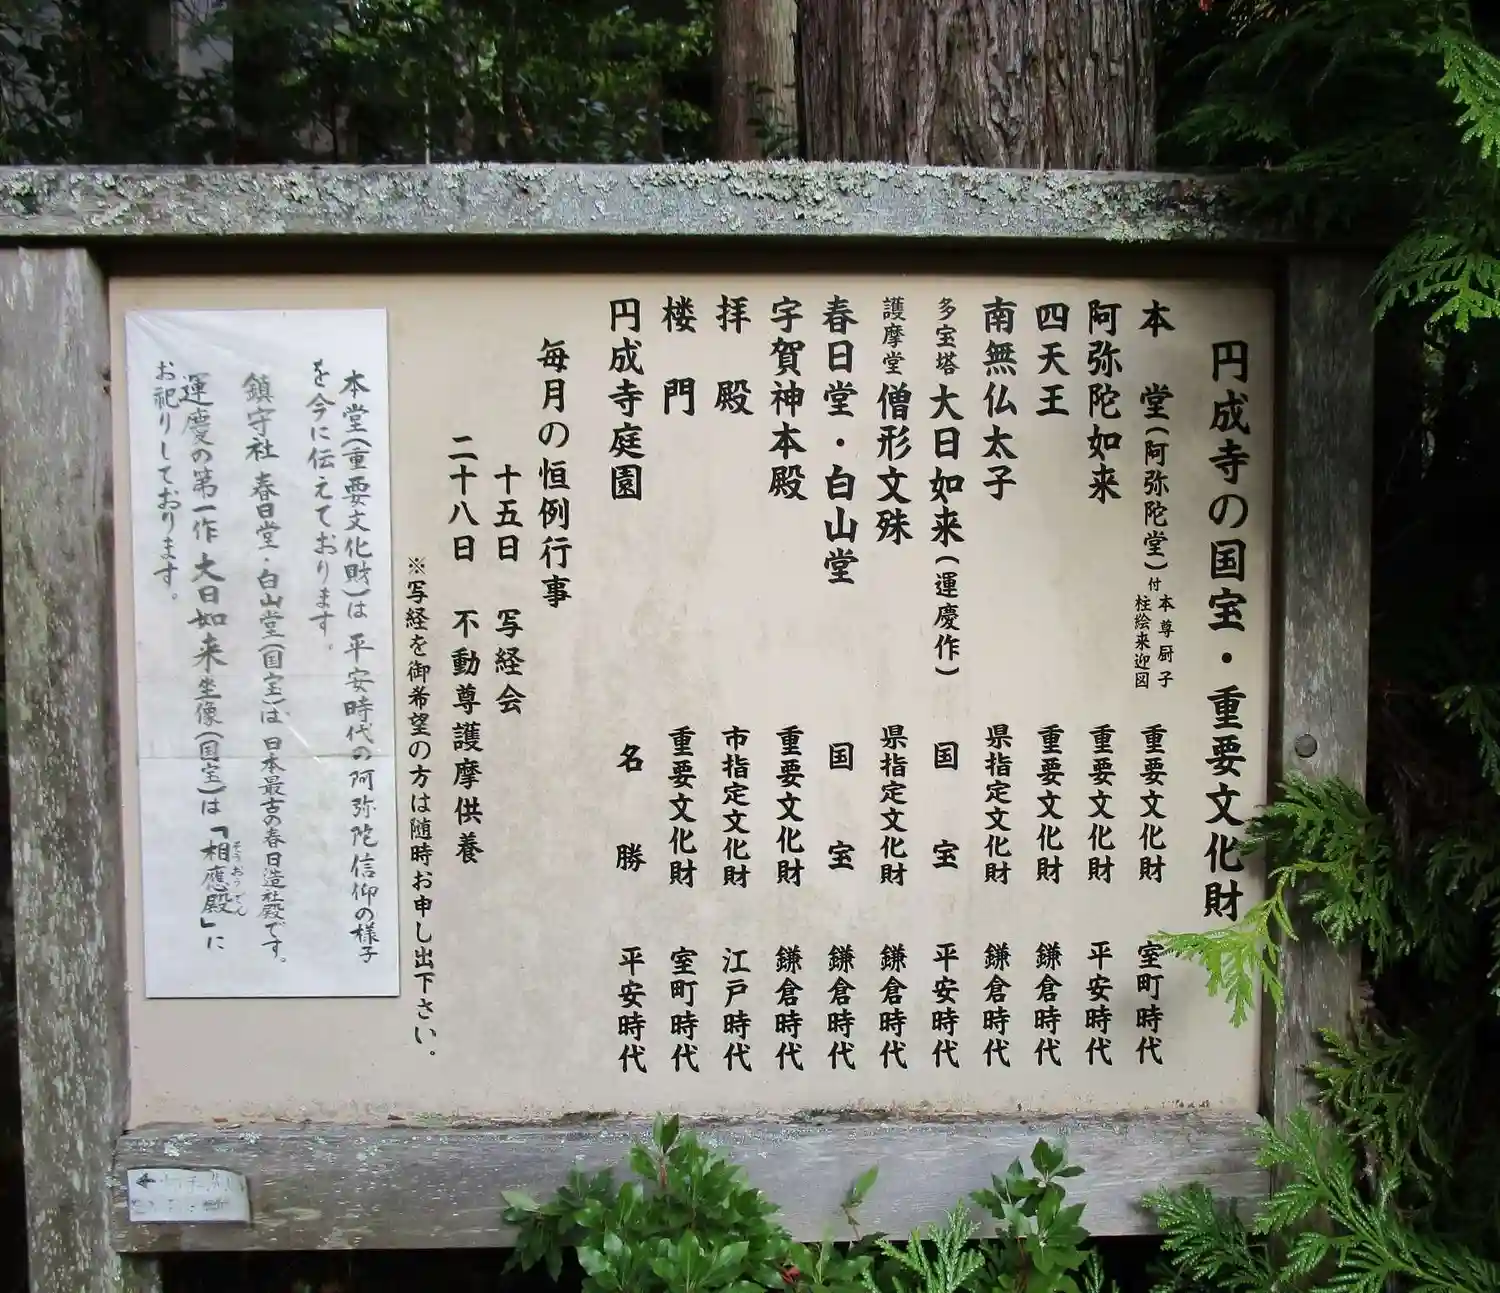 円成寺の国宝・重要文化財
本堂(阿弥陀堂)付本尊厨子柱絵来迎図 重要文化財 室町時代
阿弥陀如来 重要文化財 平安時代
四天王 重要文化財 鎌倉時代
南無仏太子 県指定文化財 鎌倉時代
多宝塔 大日如来(運慶作) 国宝 平安時代
護摩堂 僧形文殊 県指定文化財 鎌倉時代
春日堂・白山堂 国宝 鎌倉時代
宇賀神本殿 重要文化財 鎌倉時代
拝殿 市指定文化財 江戸時代
楼門 重要文化財 室町時代
円成寺庭園 名勝 平安時代
毎月の恒例行事
十五日 写経会
二十八日 不動尊護摩供養
※写経を御希望の方は随時お申し出下さい。
本堂(重要文化財)は 平安時代の阿弥陀信仰の様子
を今に伝えております。
鎮守社 春日堂・白山堂(国宝)は 日本最古の春日造社殿です。
運慶の第一作 大日如来坐像(国宝)は「相應殿」に
そうおうでん
お祀りしております。